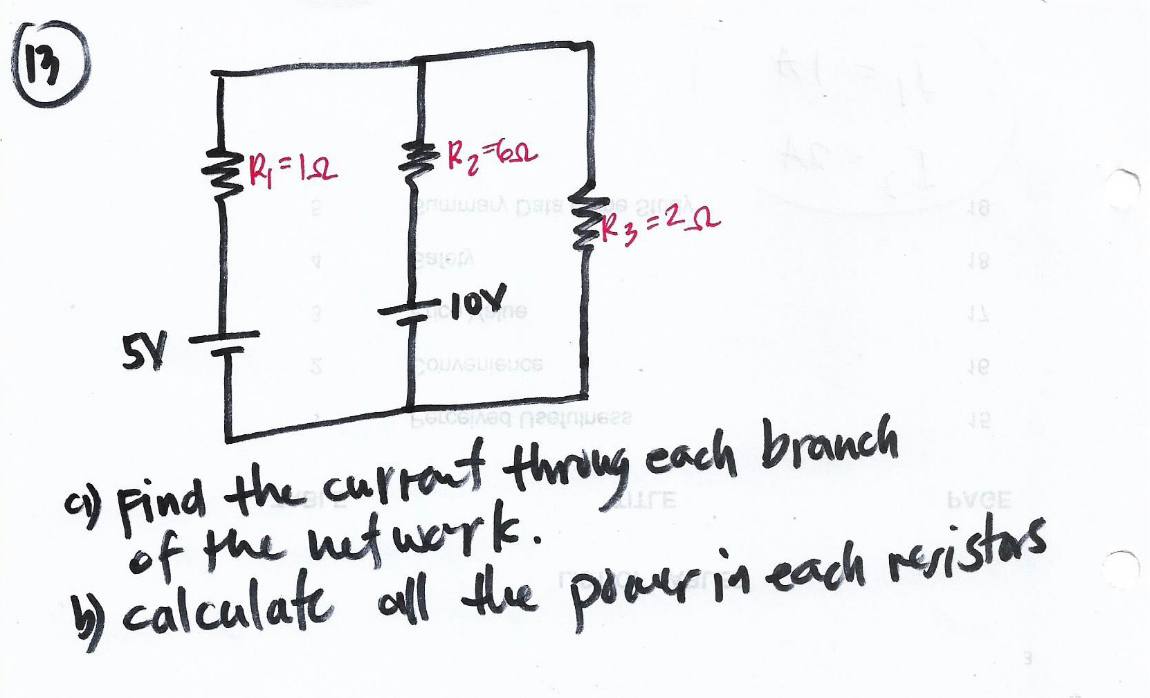 13
R₁=1Ω
R₂=6Ω
R₃=2Ω
10V
5V
a) Find the current throug each branch
of the network.
b) calculate all the power in each resistors